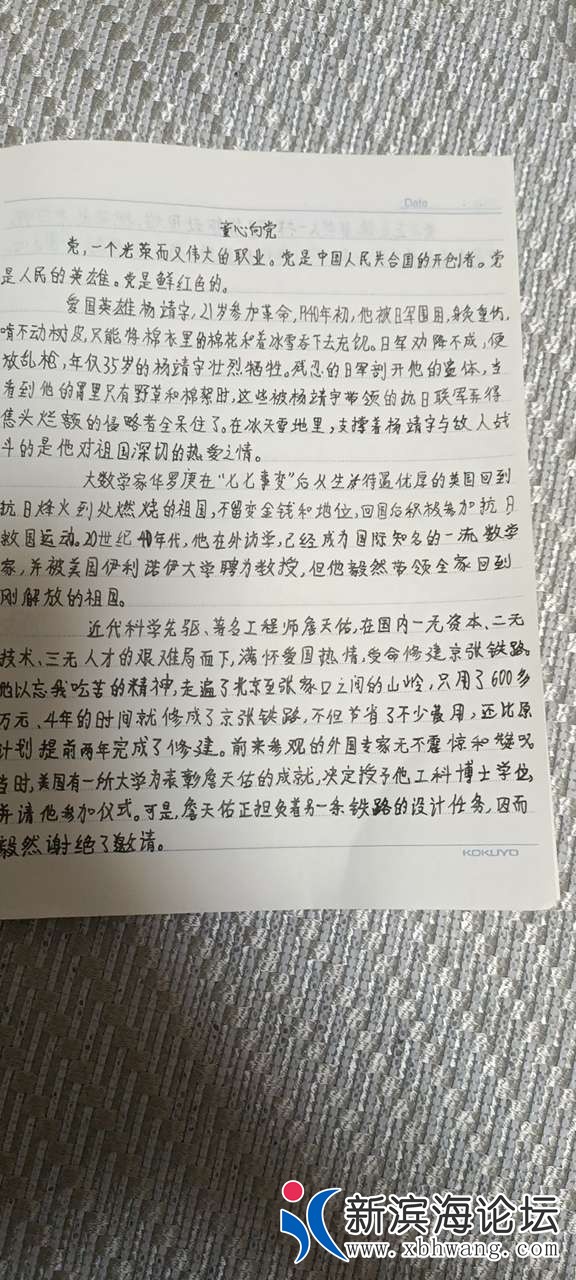 Date
童心向党
党,一个光荣而又伟大的职业。党是中国人民共合国的开创者。党
是人民的英雄。党是鲜红色的。
爱国英雄杨靖宇,21岁参加革命,1940年初,他被日军围困,身负重伤,
啃不动树皮,只能将棉衣里的棉花和着冰雪吞下去充饥。日军劝降不成,便
放乱枪,年仅35岁的杨靖宇壮烈牺牲。残忍的日军剖开他的遗体,当
看到他的胃里只有野草和棉絮时,这些被杨靖宇带领的抗日联军弄得
焦头烂额的侵略者全呆住了。在冰天雪地里,支撑着杨靖宇与敌人战
斗的是他对祖国深切的热爱之情。
大数学家华罗庚在“七七事变”后从生活待遇优厚的英国回到
抗日烽火到处燃烧的祖国,不留恋金钱和地位,回国后积极参加抗日
救国运动。20世纪40年代,他在外访学,已经成为国际知名的一流数学
家,并被美国伊利诺伊大学聘为教授,但他毅然带领全家回到
刚解放的祖国。
近代科学先驱、著名工程师詹天佑,在国内一无资本、二无
技术、三无人才的艰难局面下,满怀爱国热情,受命修建京张铁路。
他以忘我吃苦的精神,走遍了北京至张家口之间的山岭,只用了600多
万元、4年的时间就修成了京张铁路,不但节省了不少费用,还比原
计划提前两年完成了修建。前来参观的外国专家无不震惊和赞叹。
当时,美国有一所大学为表彰詹天佑的成就,决定授予他工科博士学位,
并请他参加仪式。可是,詹天佑正担负着另一条铁路的设计任务,因而
毅然谢绝了邀请。
KOKUYO
新滨海论坛
www.xbhwang.com